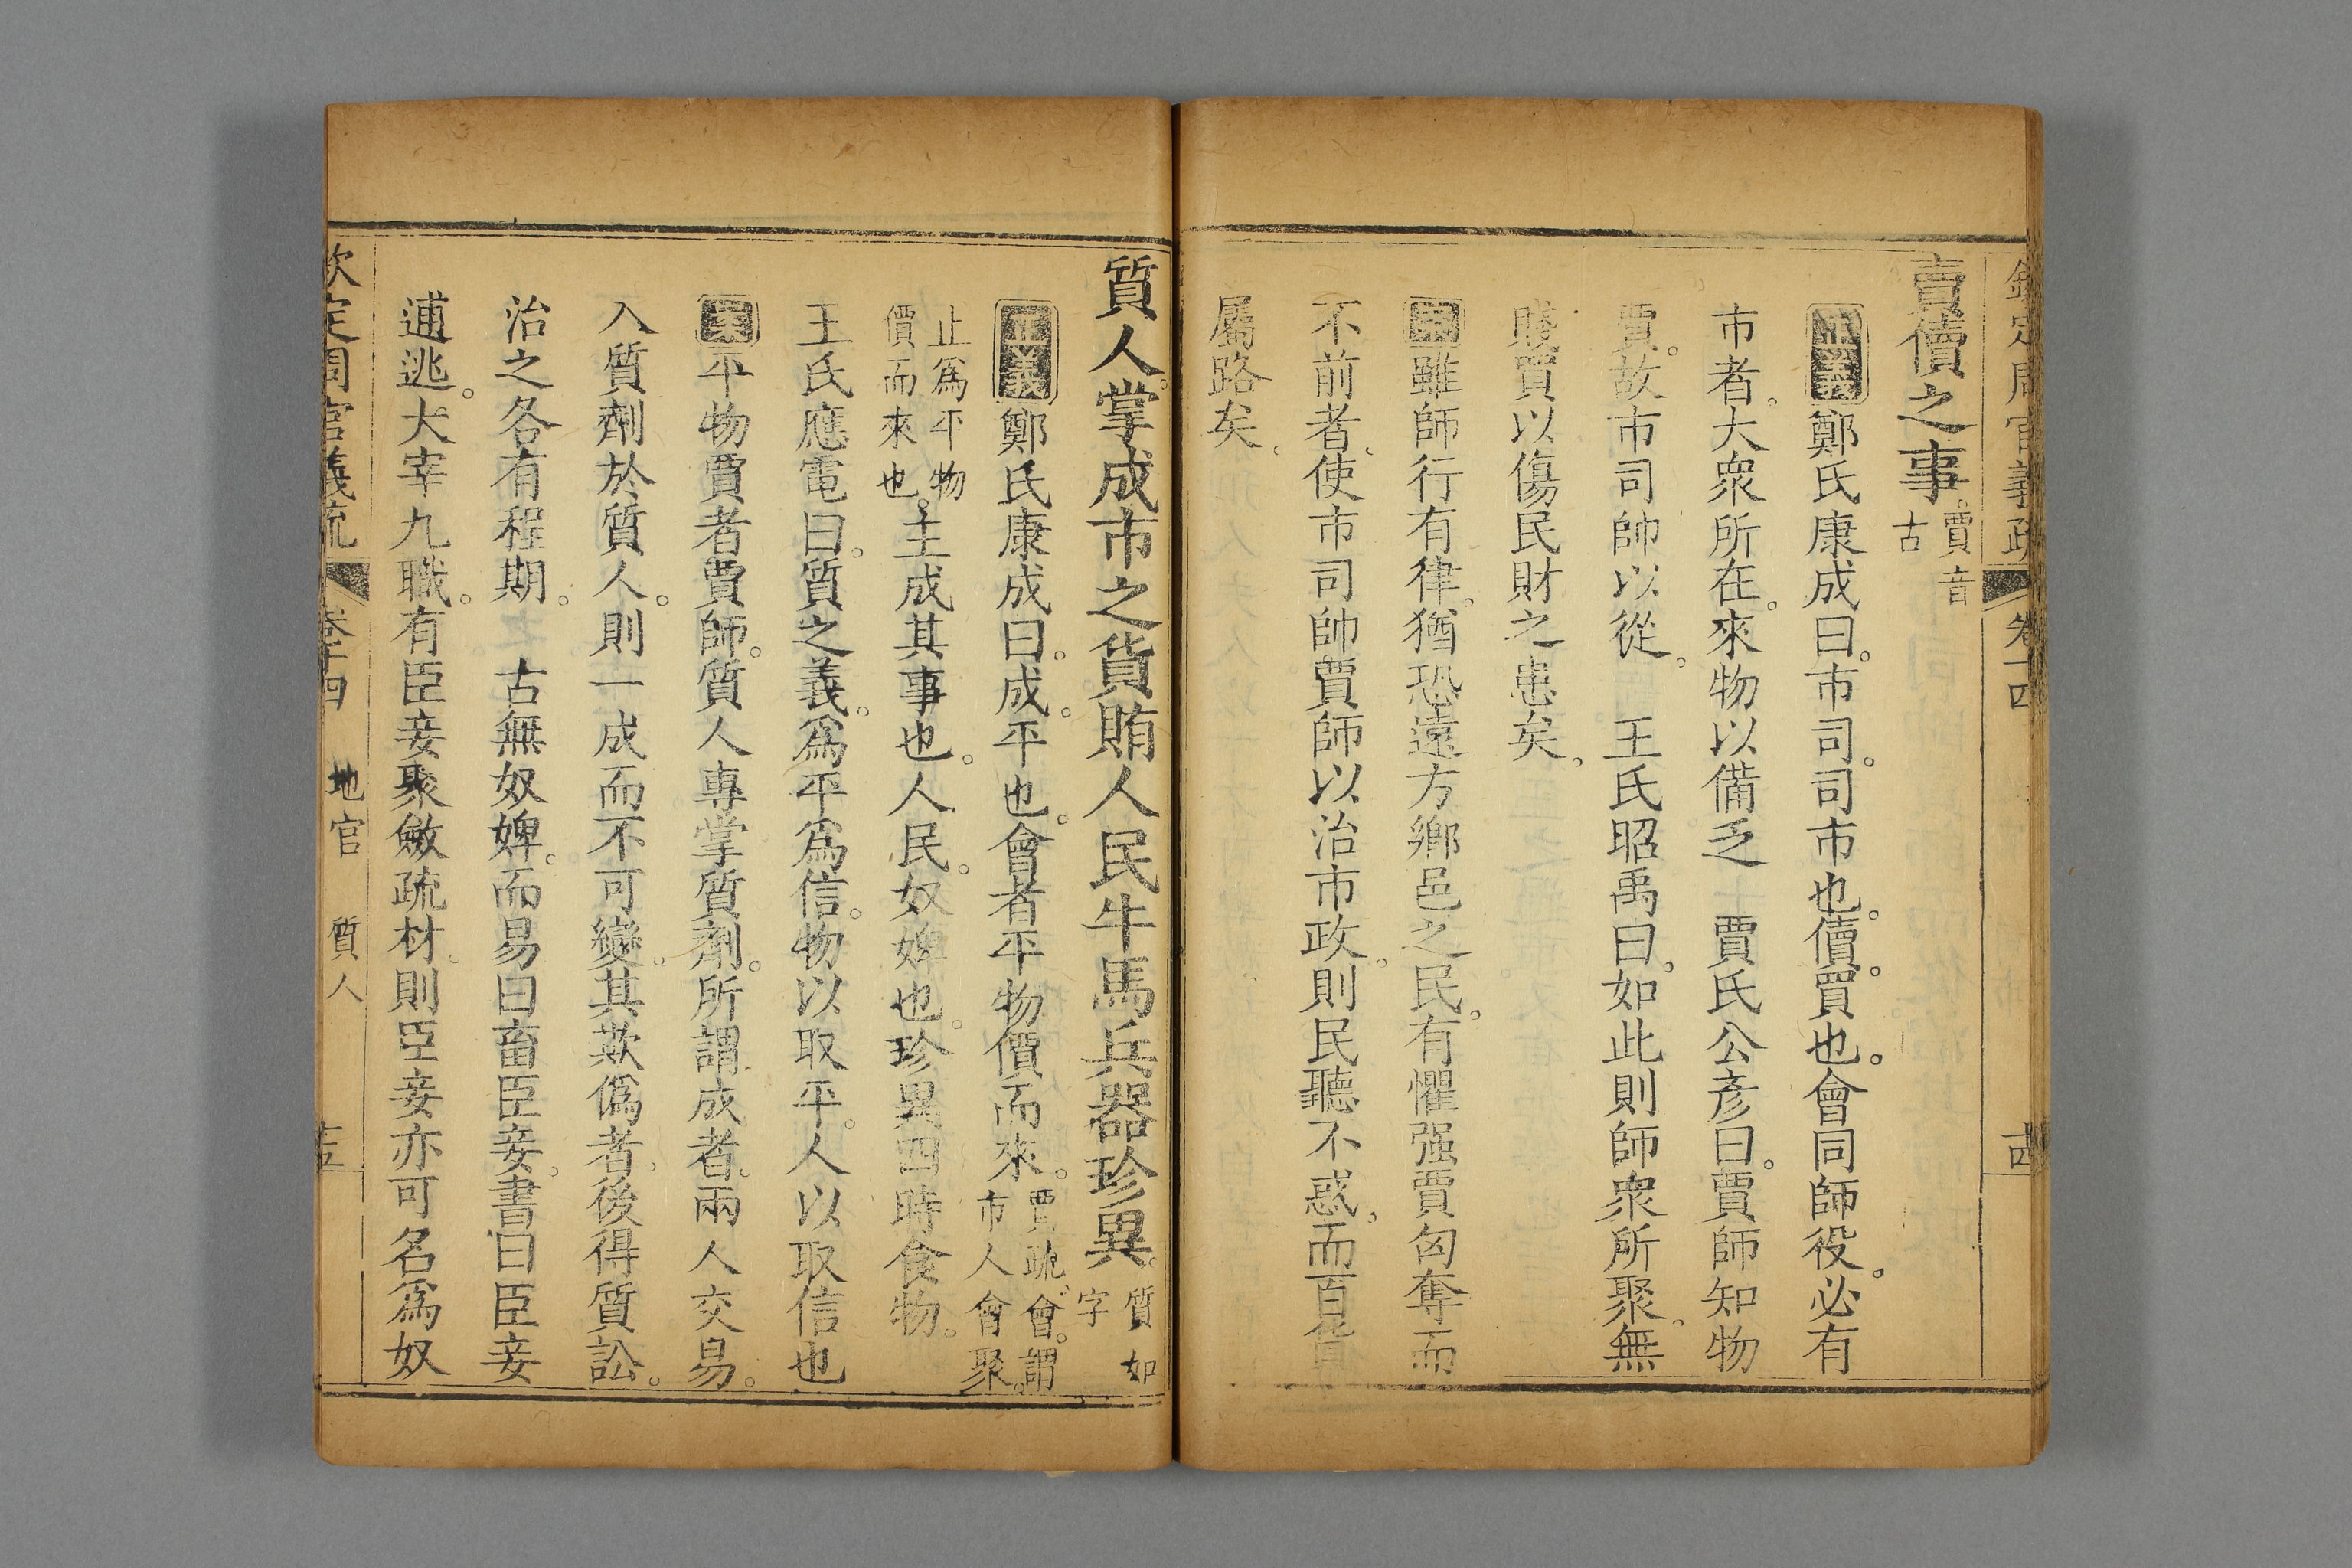 欽定周官義疏 卷十四 古
賣儥之事。賈音古
正義鄭氏康成曰。市司。司市也。儥。買也。會同師役。必有
市者。大衆所在。來物以備之 賈氏公彥曰。賈師知物
賈。故市司帥以從。 王氏昭禹曰。如此則師衆所聚。無
賤買以傷民財之患矣。
案雖師行有律。猶恐遠方鄉邑之民。有懼强賈匃奪而
不前者。使市司帥賈師以治市政。則民聽不惑。而百貨
屬路矣。
質人。掌成市之貨賄人民牛馬兵器珍異。質如字
正義鄭氏康成曰。成。平也。會者平物價而來。賈疏。會。謂市人會聚。
止爲平物價而來也。主成其事也。人民。奴婢也。珍異四時食物。
王氏應電曰。質之義。爲平爲信。物以取平。人以取信也
案平物賈者賈師。質人專掌質劑。所謂成者。兩人交易。
入質劑於質人。則一成而不可變。其欺僞者。後得質訟。
治之各有程期。 古無奴婢。而易曰畜臣妾。書曰臣妾
逋逃。大宰九職。有臣妾聚斂疏材。則臣妾亦可名爲奴
欽定周官義疏 卷十四 地官 質人 十五